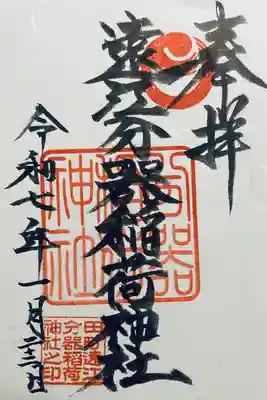 奉拝
遠江分器稲荷神社
令和七年一月二十三日
分器
稲荷
神社
田町遠江
分器稲荷
神社之印